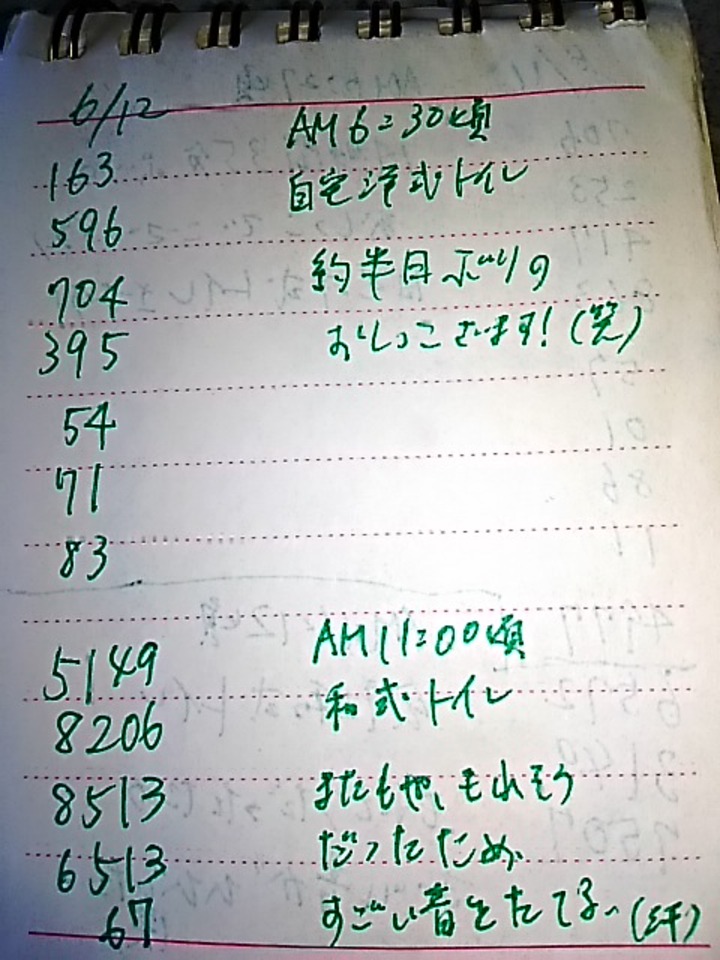 6/12
AM6:30頃
163
自宅洋式トイレ
596
約半日ぶりの
704
おしっこざます!(笑)
395
54
71
83
AM11:00頃
5149
和式トイレ
8206
またもや、もれそう
8513
だったため、
6513
すごい音をたてる~(汗)
67